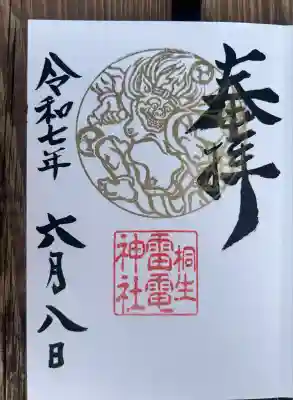 奉拝
桐生
雷電
神社
令和七年
六月八日